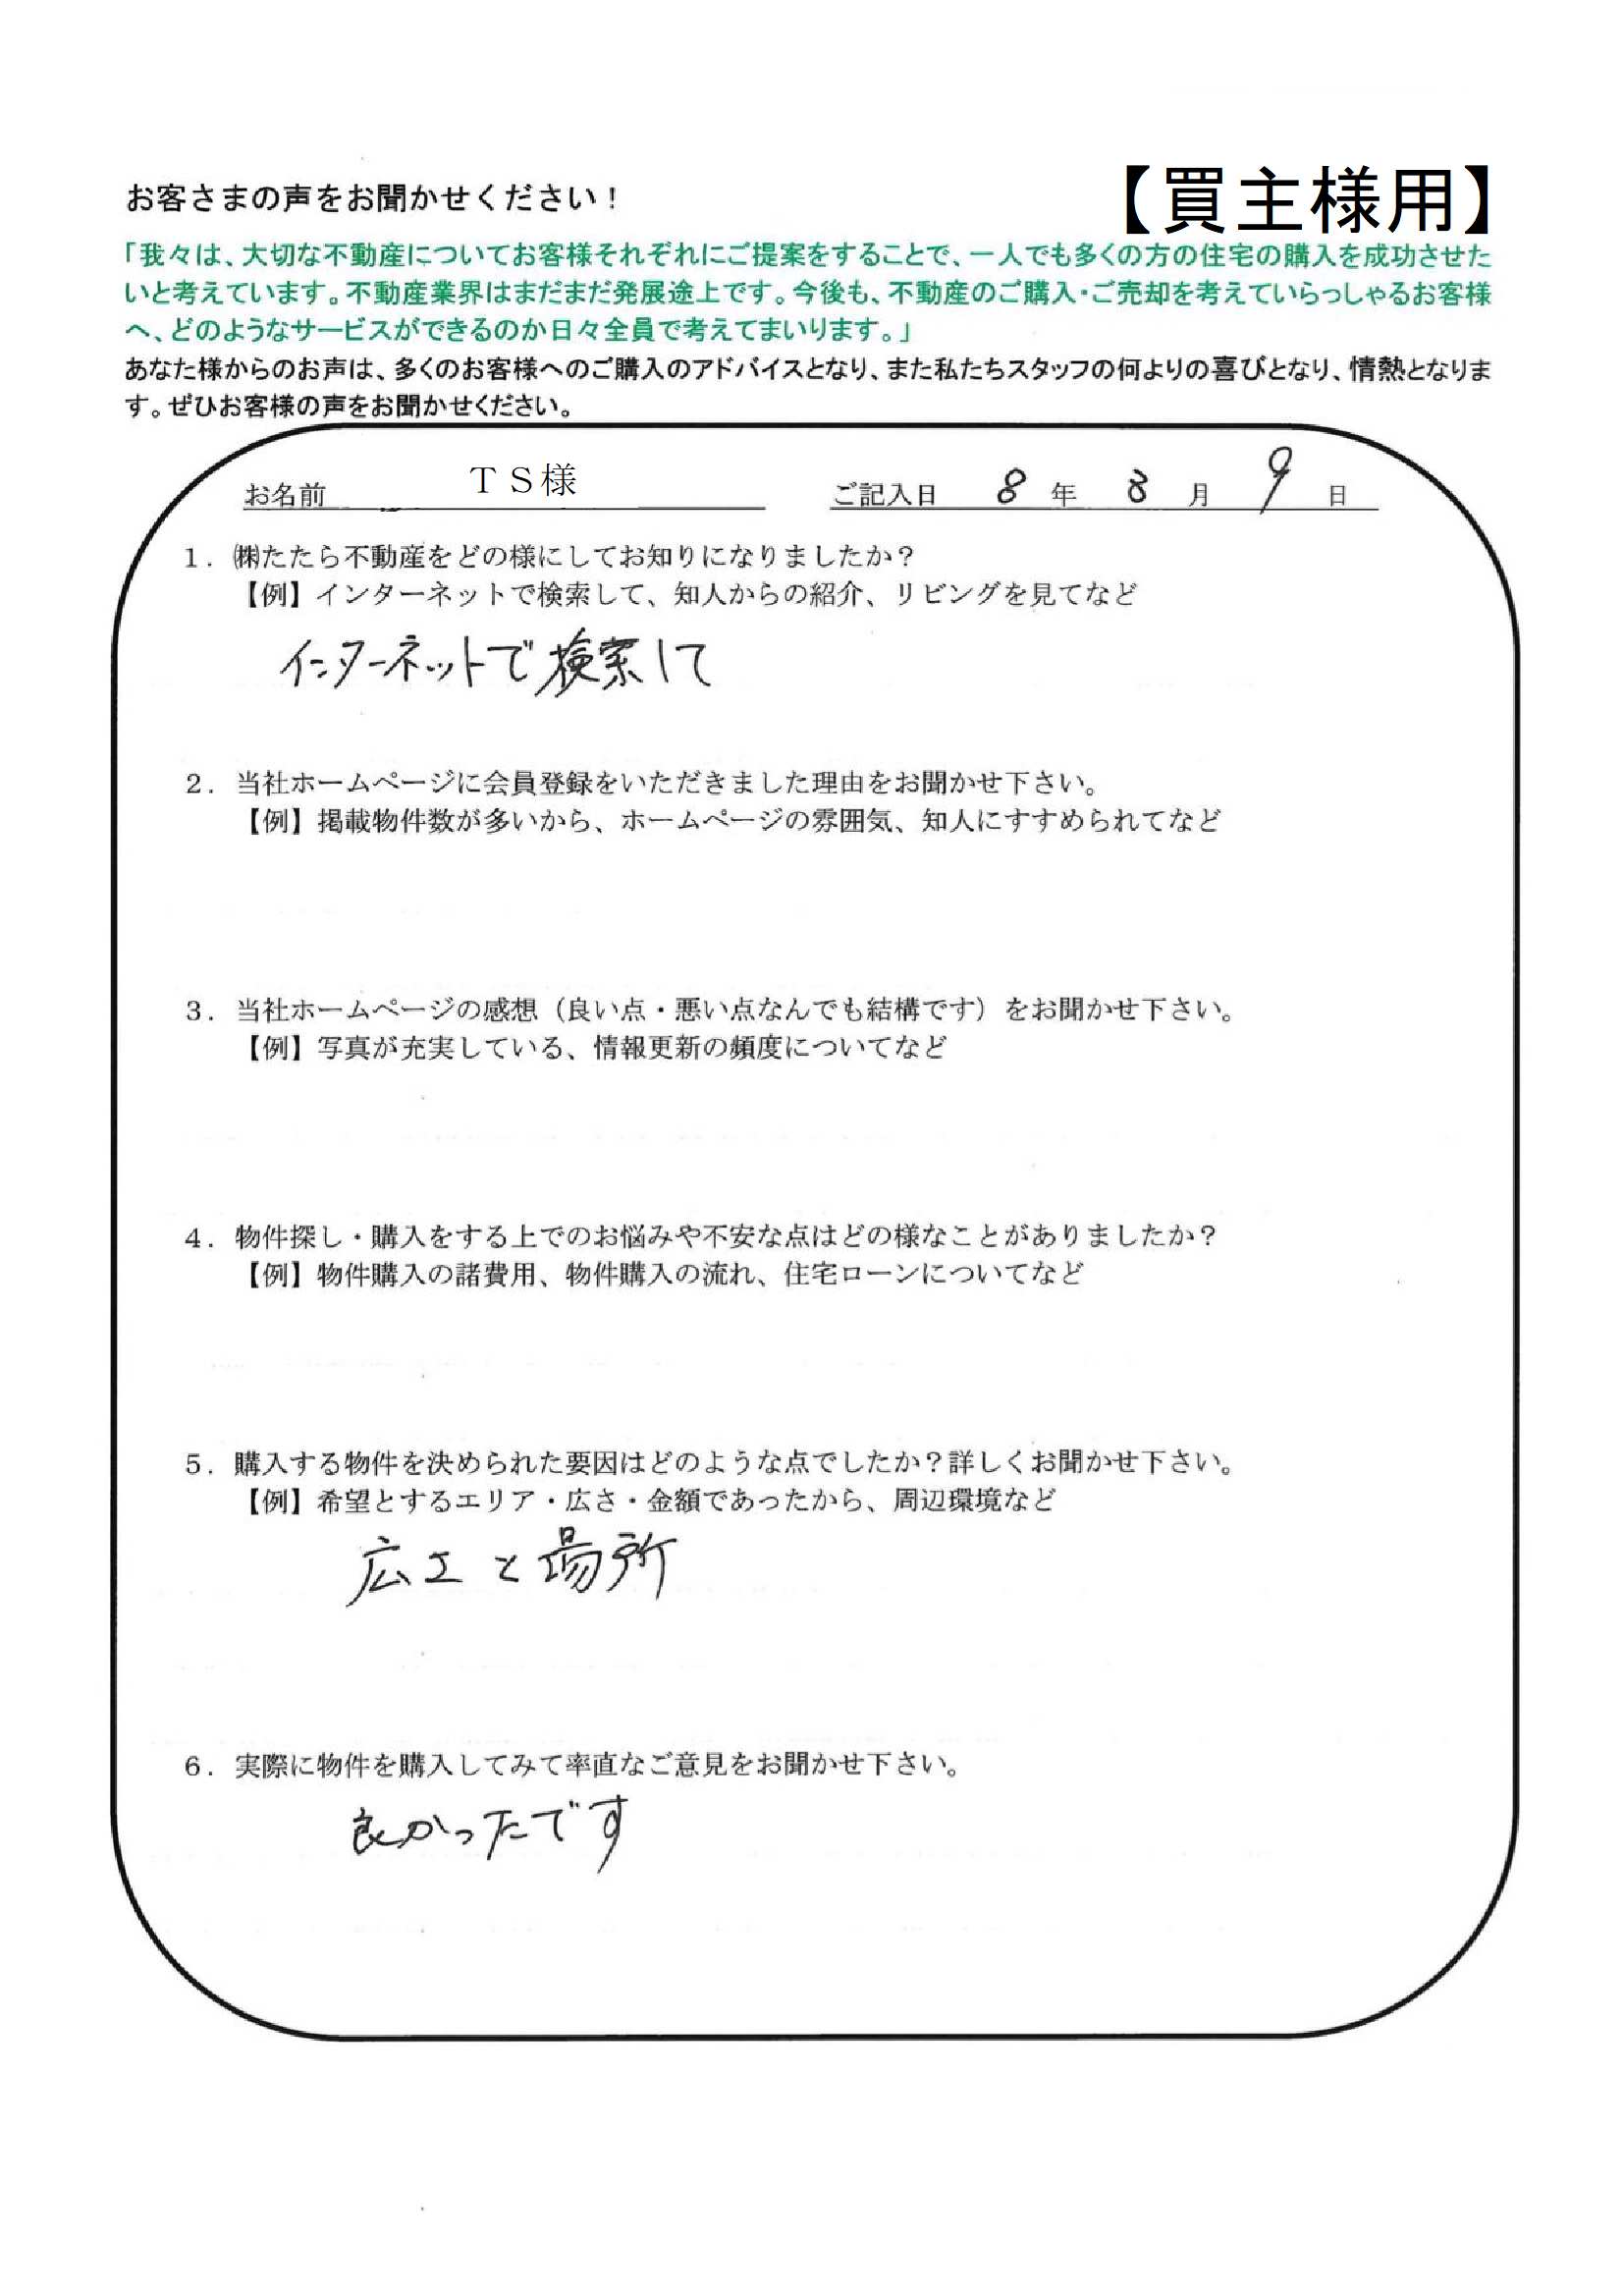 お客さまの声をお聞かせください！
【買主様用】
「我々は、大切な不動産についてお客様それぞれにご提案をすることで、一人でも多くの方の住宅の購入を成功させた
いと考えています。不動産業界はまだまだ発展途上です。今後も、不動産のご購入・ご売却を考えていらっしゃるお客様
へ、どのようなサービスができるのか日々全員で考えてまいります。」
あなた様からのお声は、多くのお客様へのご購入のアドバイスとなり、また私たちスタッフの何よりの喜びとなり、情熱となりま
す。ぜひお客様の声をお聞かせください。
お名前 ＴＳ様 ご記入日 8 年 3 月 9 日
１．㈱たたら不動産をどの様にしてお知りになりましたか？
【例】インターネットで検索して、知人からの紹介、リビングを見てなど
インターネットで検索して
２．当社ホームページに会員登録をいただきました理由をお聞かせ下さい。
【例】掲載物件数が多いから、ホームページの雰囲気、知人にすすめられてなど
３．当社ホームページの感想（良い点・悪い点なんでも結構です）をお聞かせ下さい。
【例】写真が充実している、情報更新の頻度についてなど
４．物件探し・購入をする上でのお悩みや不安な点はどの様なことがありましたか？
【例】物件購入の諸費用、物件購入の流れ、住宅ローンについてなど
５．購入する物件を決められた要因はどのような点でしたか？詳しくお聞かせ下さい。
【例】希望とするエリア・広さ・金額であったから、周辺環境など
広さと場所
６．実際に物件を購入してみて率直なご意見をお聞かせ下さい。
良かったです